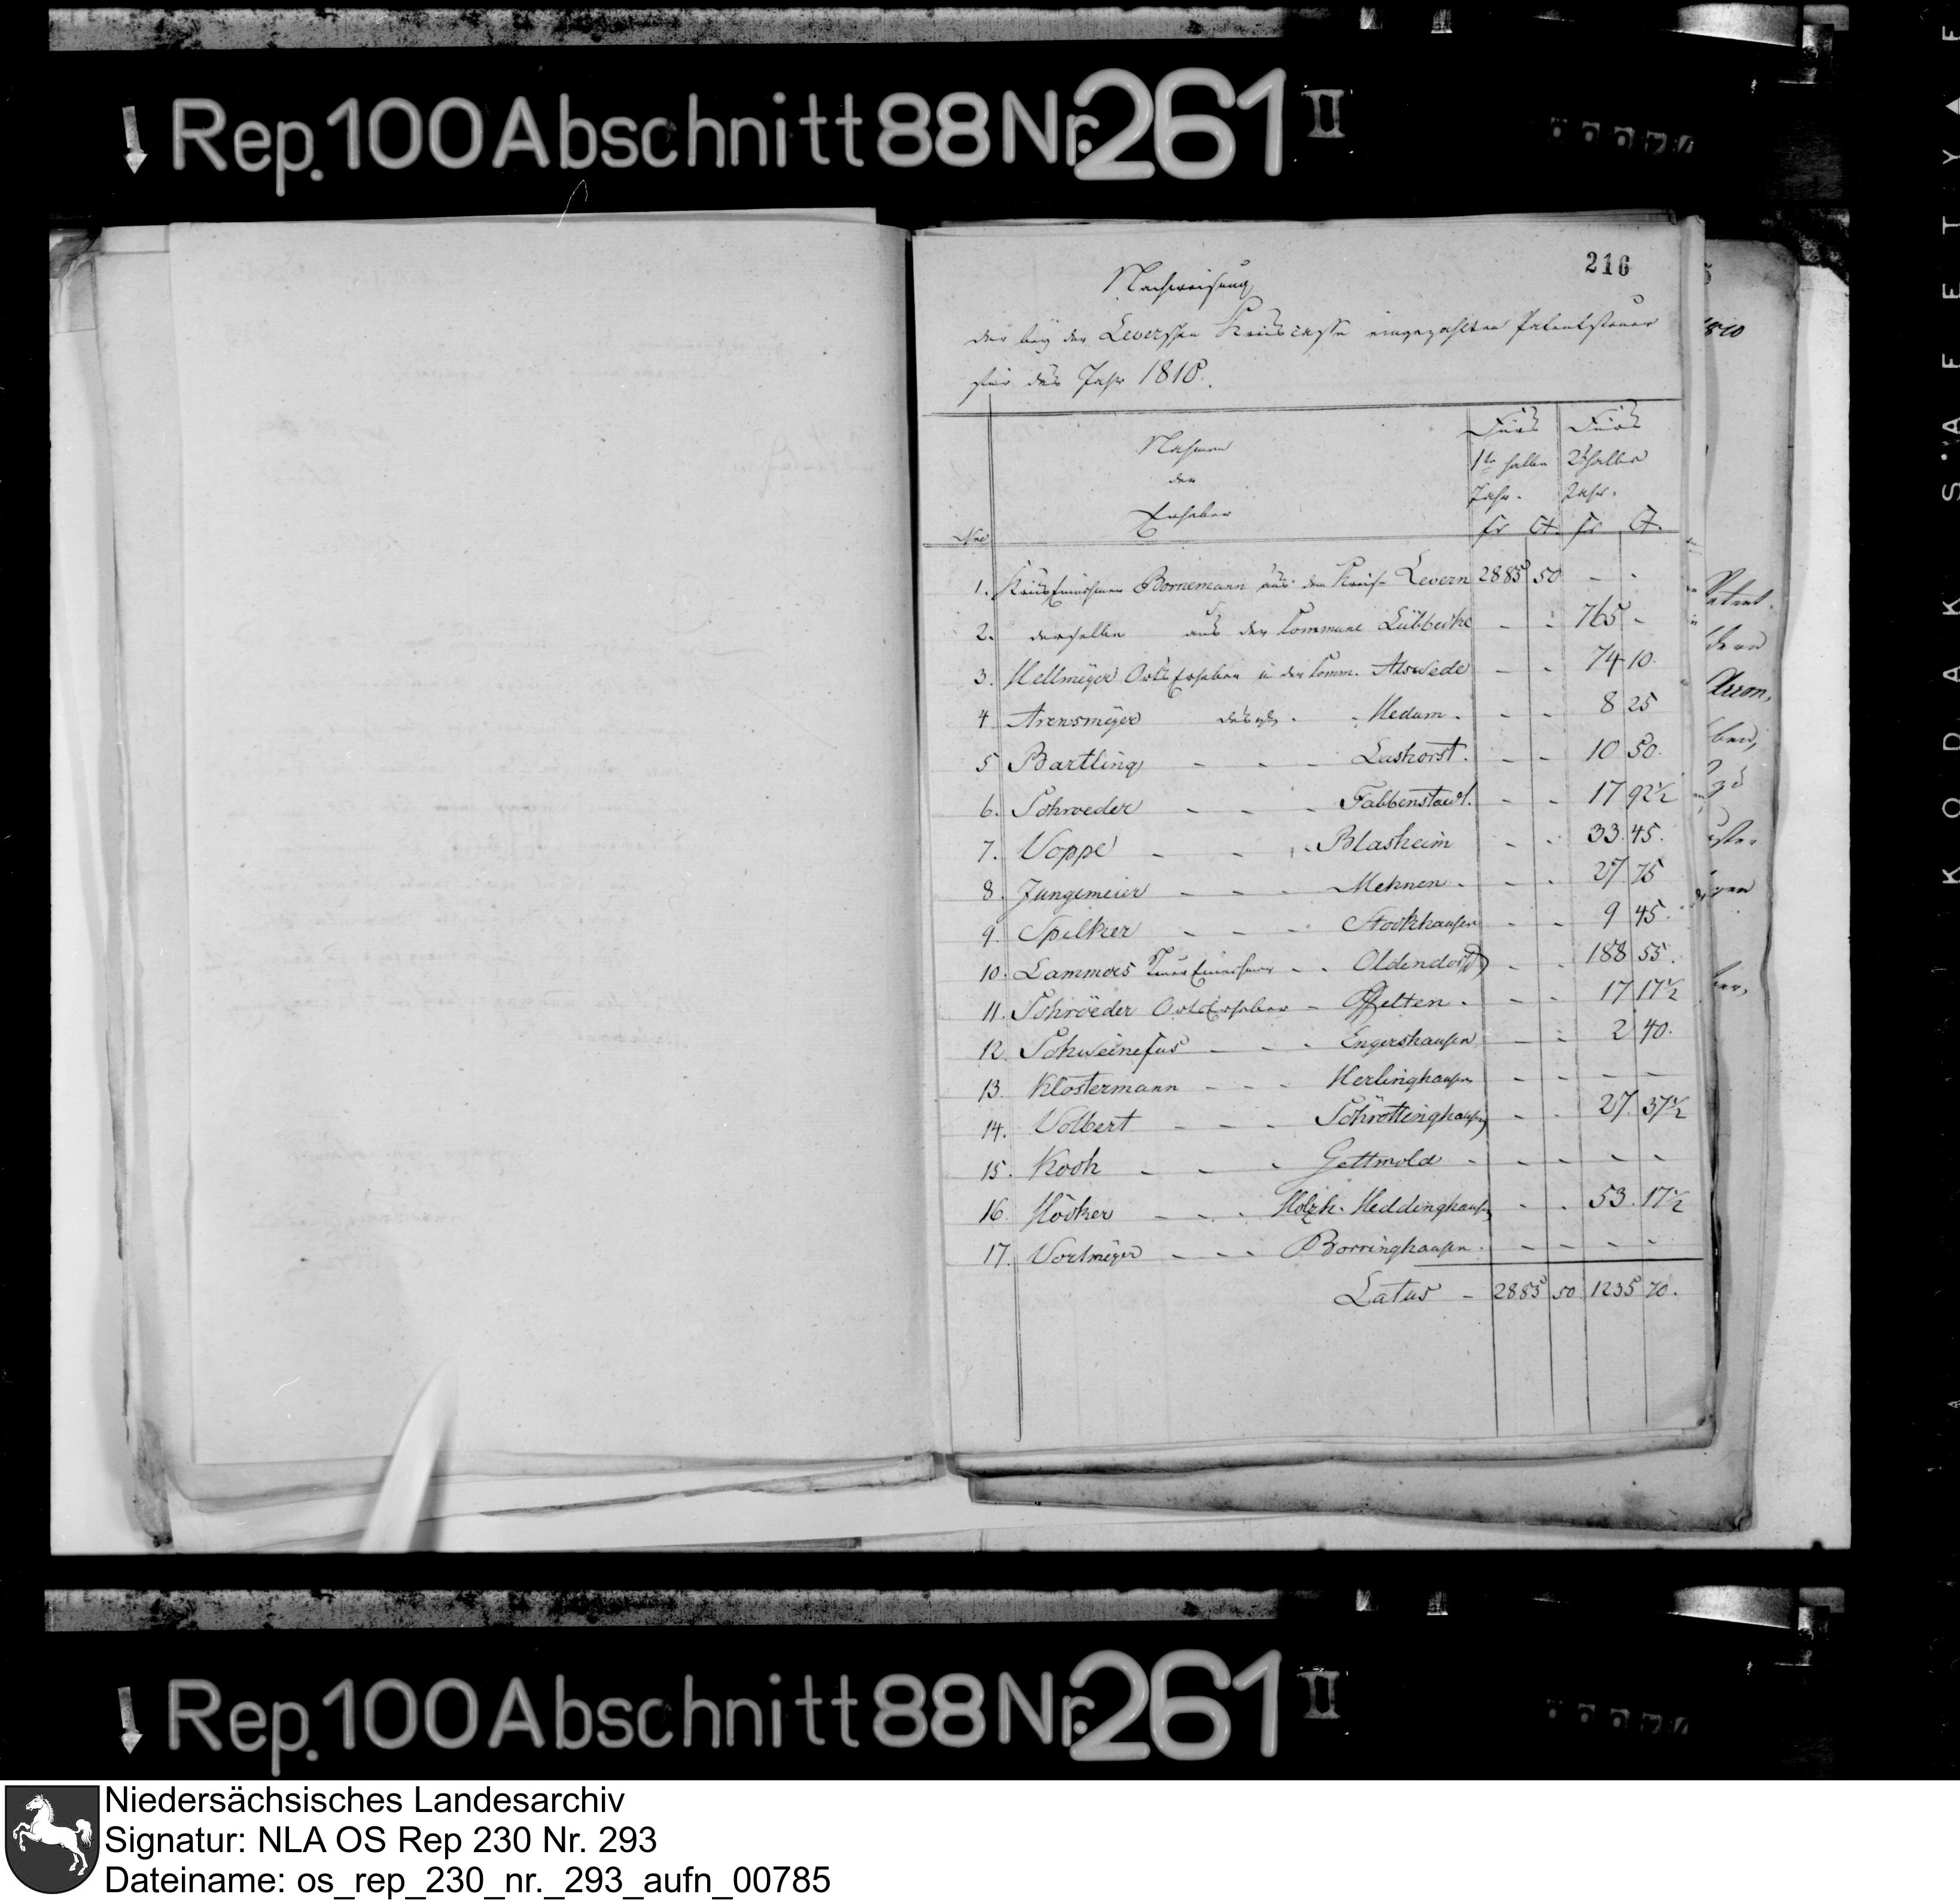 Rep. 100 Abschnitt 88 Nr. 261 II
216
Nachweisung
der bey der Levernschen Kreiscasse eingezahlten Patentsteuer
für das Jahr 1810.
Nro
Nahmen
der
Erheber
Fürs
1te halbe
Jahr.
Fr Ct.
Fürs
2te halbe
Jahr.
Fr Ct.
1. Kreis Einnehmer Bornemann aus dem Kreise Levern 2885 50 - -
2. derselbe aus der Commune Lübbecke - - 765 -
3. Hellmeyer Orts Erheber in der Comm. Alswede - - 74 10.
4 Arensmeyer desgl. - Hedem. - - 8 25
5 Bartling - - - Lashorst. - - 10 50.
6. Schroeder - - - Fabbenstaedt. - - 17 92½
7. Voppe - - - Blasheim - - 33. 45.
8. Jungemeier - - - Mehnen. - - 27. 75
9. Spilker - - - Stockhausen - - 9 45.
10. Lammers Steuer Einnehmer - - Oldendorf - - 188 55.
11. Schröeder Orts Erheber - Offelten. - - 17 17½
12. Schweinefus - - - Engershausen - - 2 40.
13. Klostermann - - - Herlinghausen - - - -
14. Volbert - - - Schröttinghausen - - 27. 37½
15. Koch - - - Gettmold - - - - -
16. Höcker - - - Holzh. Heddinghausen - - 53. 17½
17. Vortmeyer - - - Borringhausen. - - - -
Latus - 2885 50 1235 70.
1810
Patent.
Arron,
Rep. 100 Abschnitt 88 Nr. 261 II
KODAK SAFETY
Niedersächsisches Landesarchiv
Signatur: NLA OS Rep 230 Nr. 293
Dateiname: os_rep_230_nr._293_aufn_00785